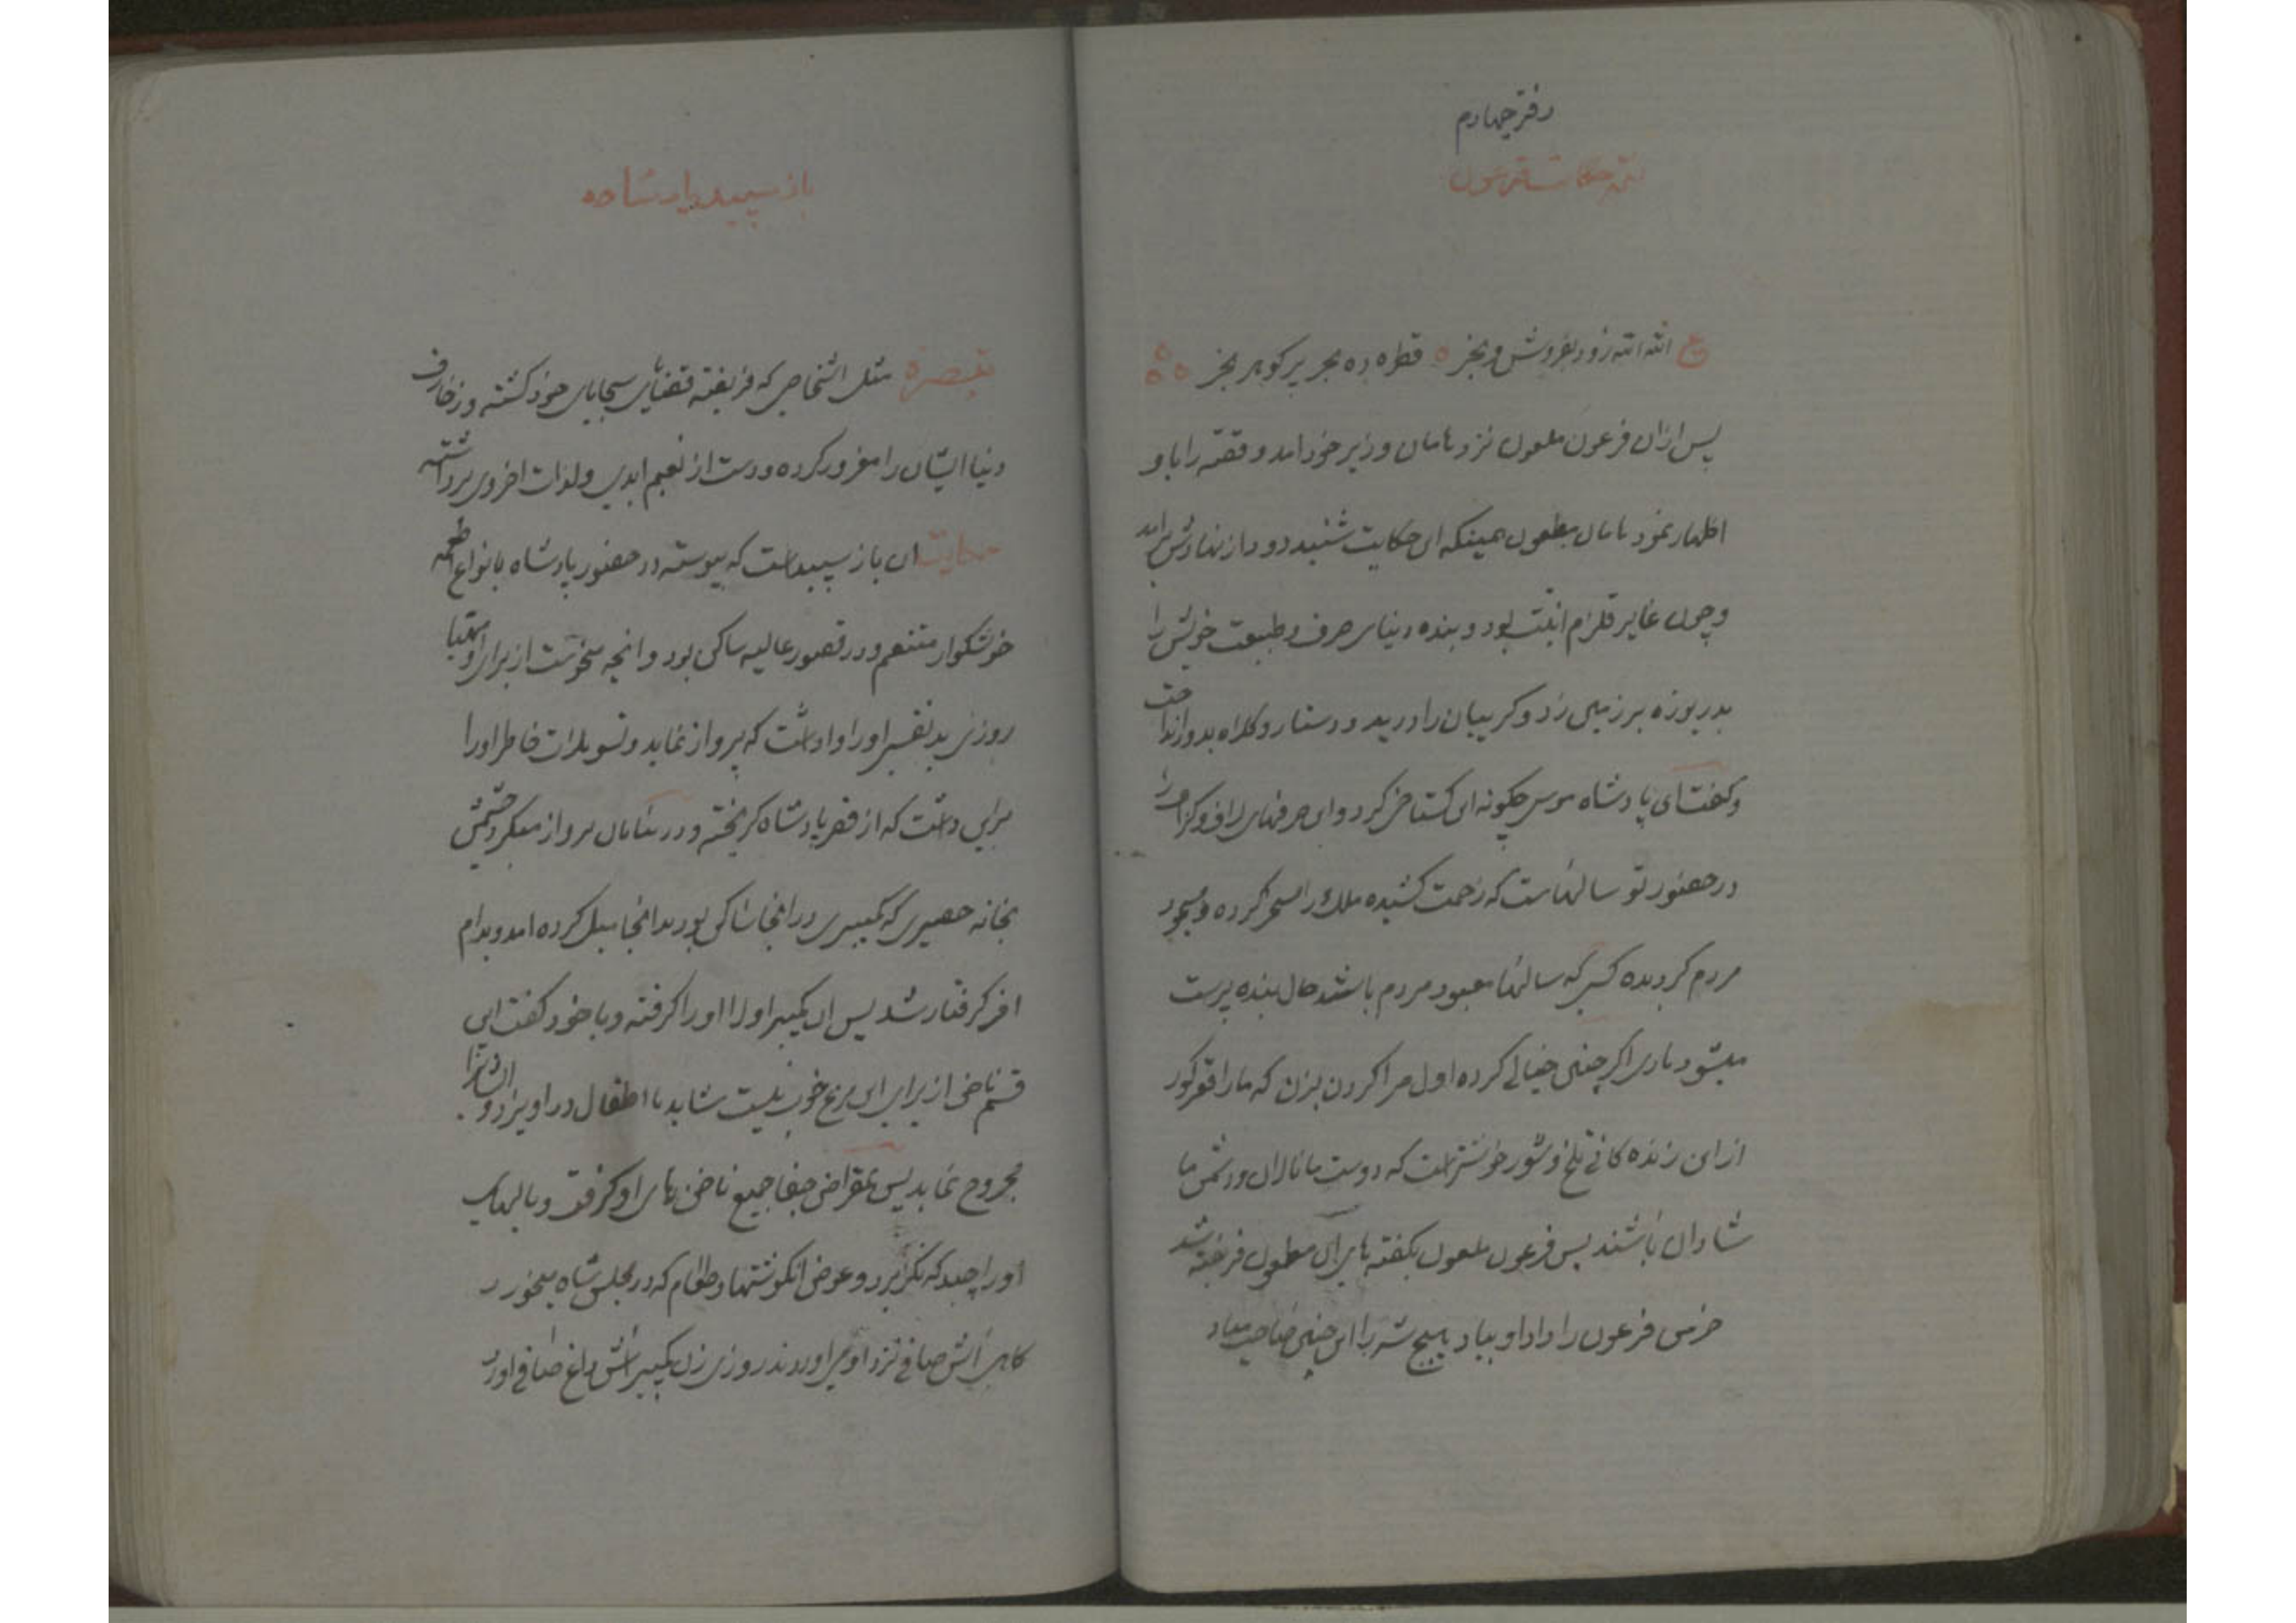 دفتر چهارم
تتمه حکایت فرعون
ع الله الله زود بفروش و بخر ه قطره ده بحر پر کوهر بخر ه ه ه
پس ازان فرعون ملعون نزد هامان وزیر خود امد و قصه را باو
اظهار نمود هامان مطعون همینکه این حکایت شنید دود از نهادش برامد
وچون غایر قلزم انیت بود و بنده دنیای صرف و طبیعت خویش را
بر زمین زد و کریبان را درید و دستار و کلاه بدور انداخت
وکفت ای پادشاه موسی چکونه این کستاخی کرد و این حرفهای لاف و کزاف را
در حضور تو سالهاست که زحمت کشیده ملک را مسخر کرده و مسجود
مردم کردیده کسی که سالها معبود مردم باشد حال بنده پرست
میشود باری اکر چنین خیالی کرده اول مرا کردن بزن که مارا قعر کور
از این زنده کانی تلخ و شور خوشتر است که دوست ما نالان و دشمن ما
شادان باشند پس فرعون ملعون بکفته های آن مطعون فریفته شد
خرمن فرعون را داد او بباد هیچ شه را این چنین صاحب مباد
باز سپید پادشاه
تبصره مثل اشخاصی که فریفته قضایای سجایای خود کشته و زخارف
دنیا ایشان را مغرور کرده و دست از نعیم ابدی و لذات اخروی برداشته
حکایت ان باز سپید است که پیوسته در حضور پادشاه بانواع اطعمه
خوشکوار متنعم و در قصور عالیه ساکن بود و انچه میخواست از برای او مهیا
روزی بد نفسی اورا واداشت که پرواز نماید و تسویلات خاطر اورا
براین داشت که از قصر پادشاه کریخته و در بیابان پرواز میکرد چشمش
بخانه حصیری که کمپیری در انجا ساکن بود بدانجا میل کرده امد و بدام
افر کرفتار شد پس ان کمپیر اورا کرفته و با خود کفت این
قسم ناخن از برای این مرغ خوب نیست شاید با اطفال در اویزد و ایشانرا
مجروح نماید پس بمقراض جفا جمیع ناخن های او کرفت و بالهای
اورا چید که نکریزد و عوض انکوشتها و طعام که در مجلس شاه میخورد
کاهی اش صافی نزد او می اوردند روزی زن کمپیر اش داغ صافی اورد